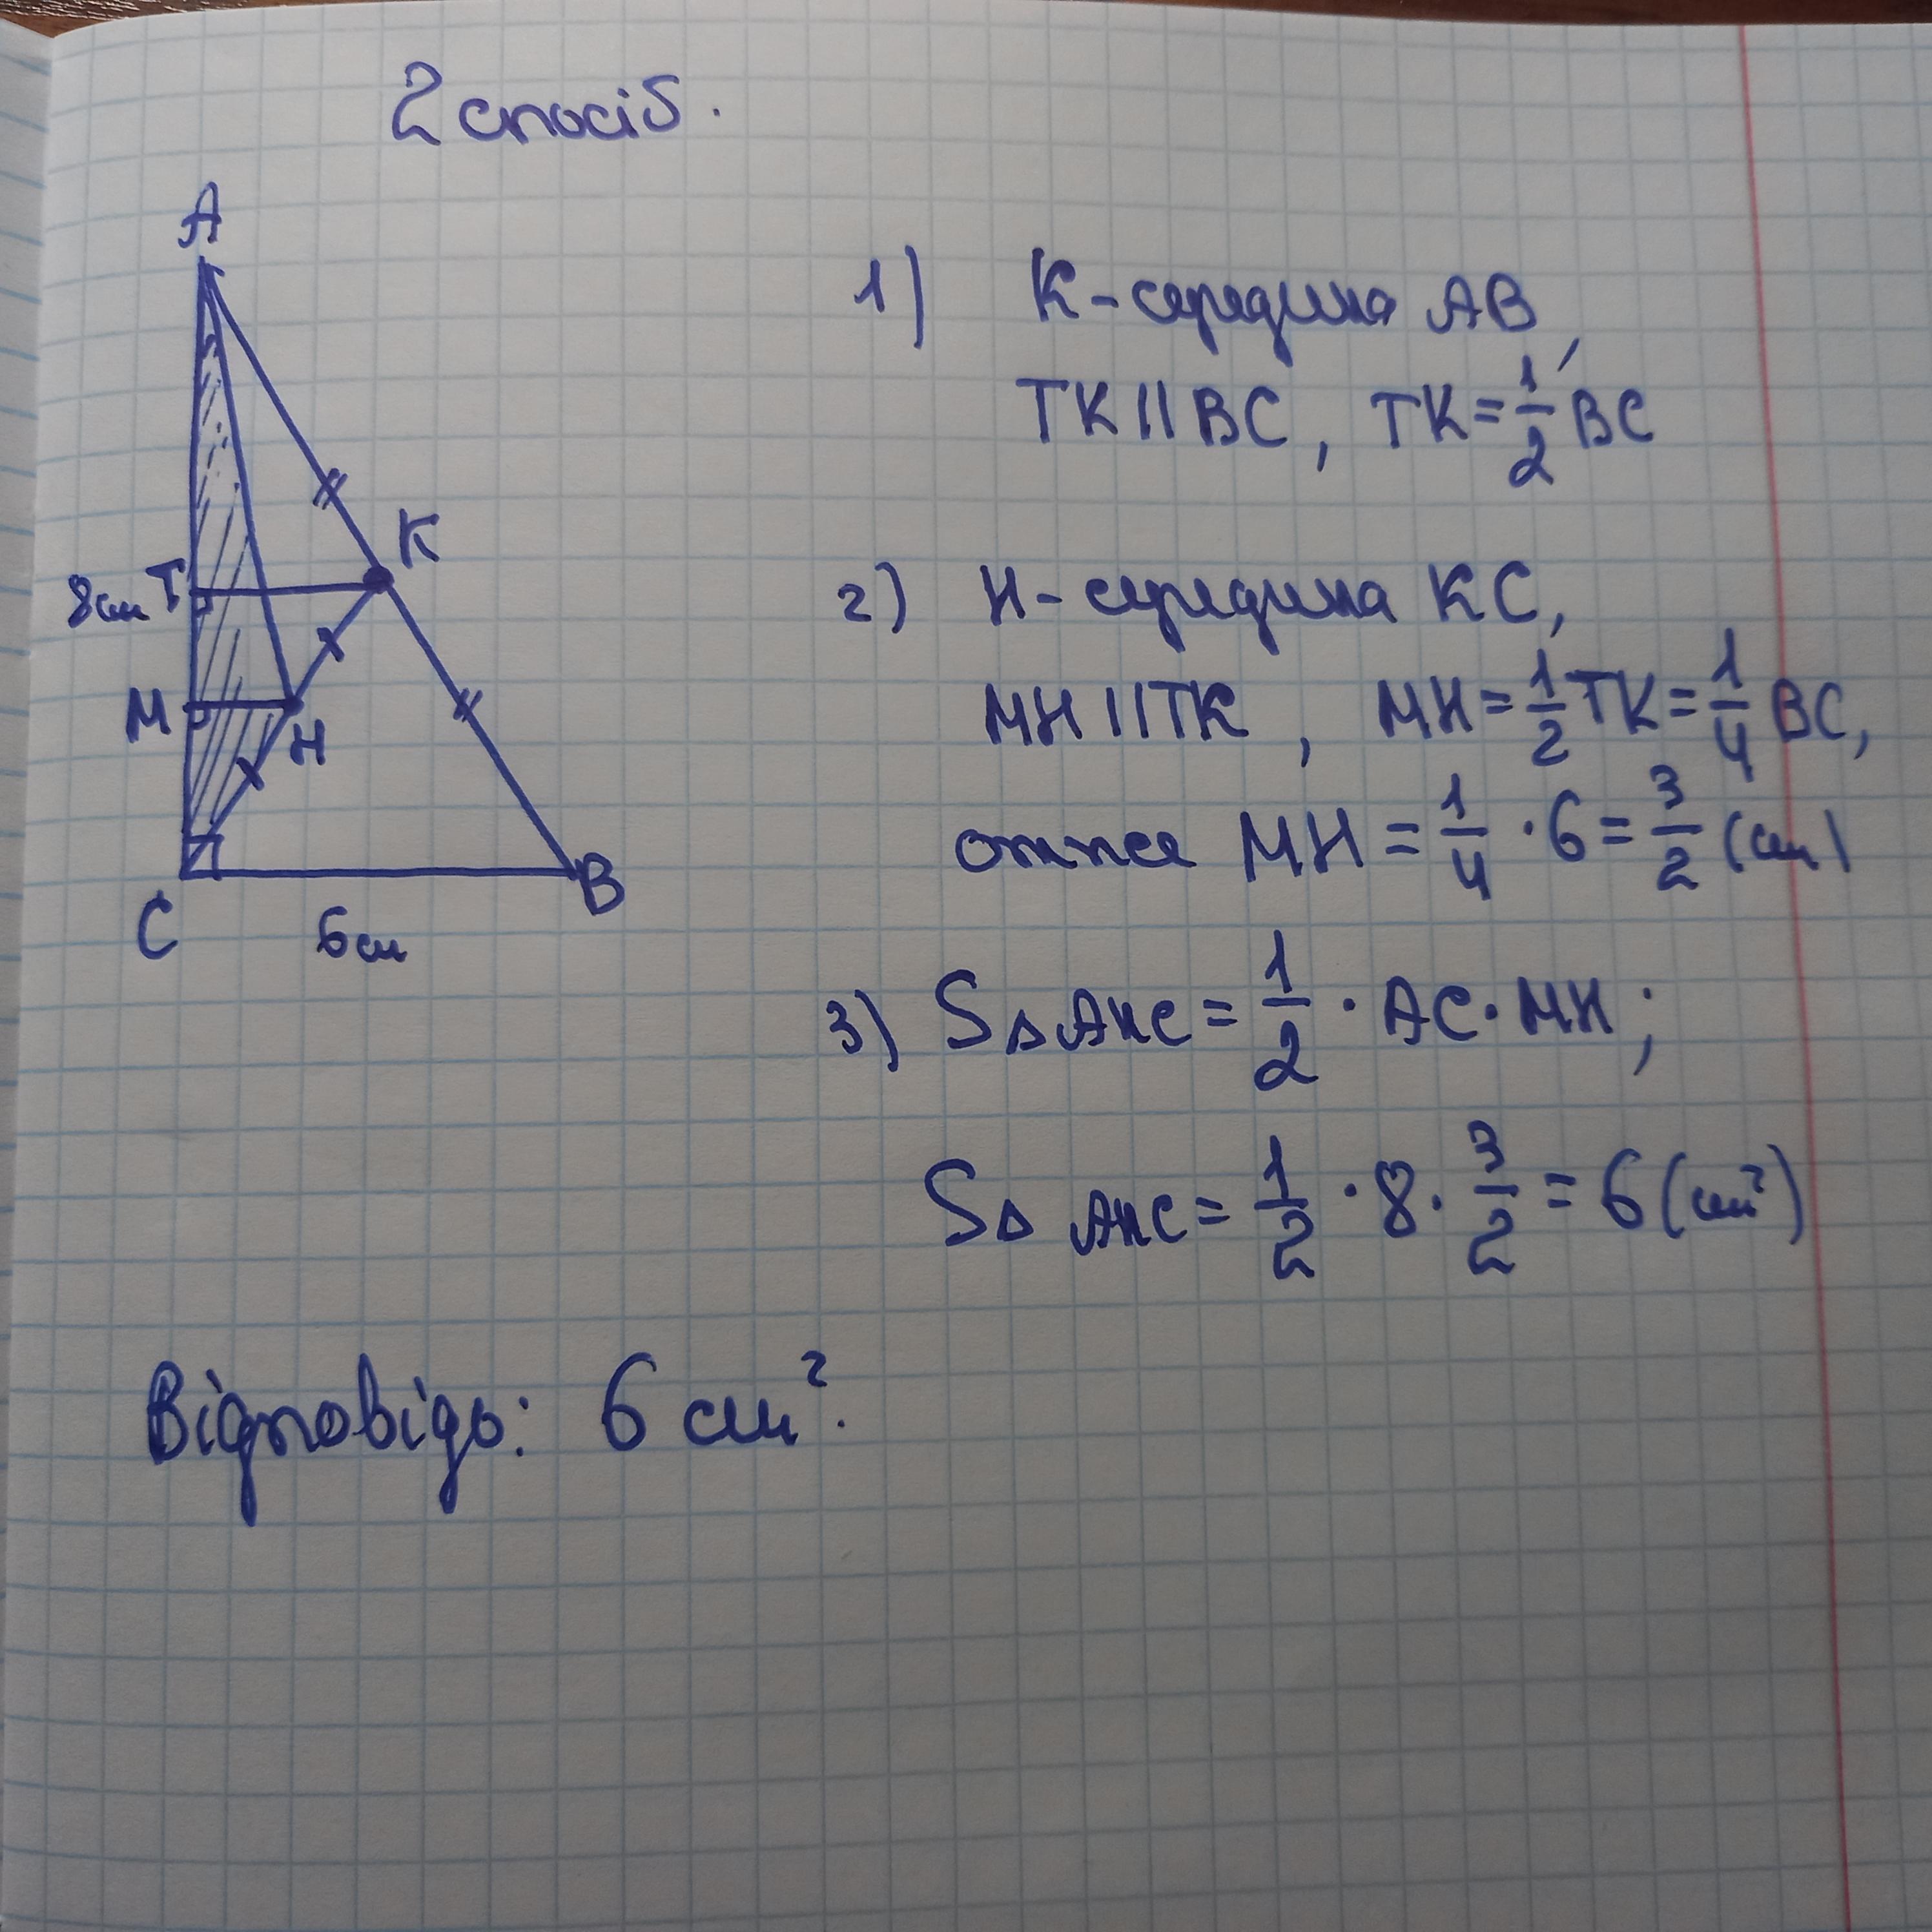 2 спосіб.
A
K
8 см T
M
H
C
B
6 см
1) K - середина AB,
TK || BC, TK = 1/2 BC
2) H - середина KC,
MH || TK, MH = 1/2 TK = 1/4 BC,
отже MH = 1/4 · 6 = 3/2 (см)
3) S△AHC = 1/2 · AC · MH;
S△AHC = 1/2 · 8 · 3/2 = 6 (см²)
Відповідь: 6 см².